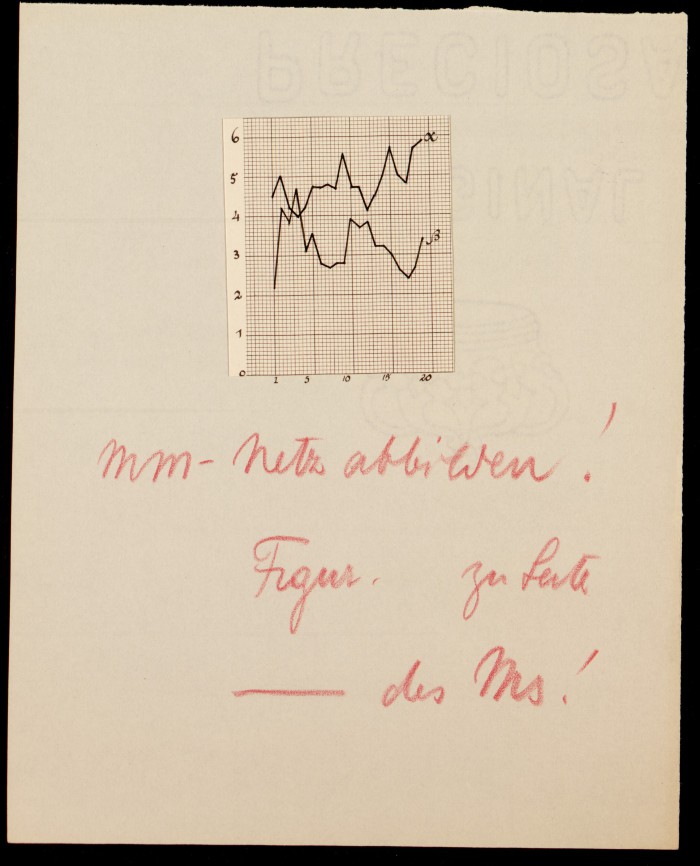 PRECIOSA
6
α
5
4
3
β
2
1
0
1 5 10 15 20
mm-Netz abbilden!
Figur. zu Seite
—— des Ms!